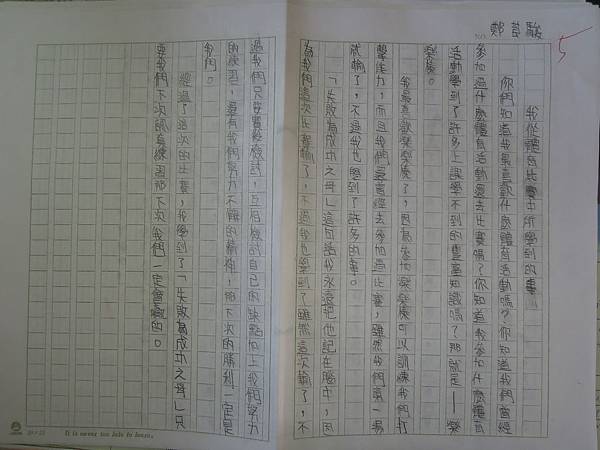 我從體育比賽中所學到的事
你們知道我最喜歡什麼體育活動嗎?你知道我們曾經
參加過什麼體育活動還去比賽嗎?你知道我參加什麼體育
活動學到了許多上課學不到的豐富知識嗎?那就是——樂
樂棒。
我最喜歡樂樂棒了,因為參加樂樂棒可以訓練我們打
擊能力,而且我們曾經去參加過比賽,雖然我們第一場
就輸了,不過我也學到了許多的事。
「失敗為成功之母」這句話我永遠把他記在腦中,因
為我們這次比賽輸了,不過我也學到了雖然這次輸了,不
過我們只要檢討,互相檢討自己的缺點加上我們努力
的練習,還有我們努力不懈的精神,那下次的勝利一定是
我們。
經過了這次的比賽,我學到了「失敗為成功之母」只
要我們下次認真練習那下次我們一定會贏的。
It is never too late to learn.